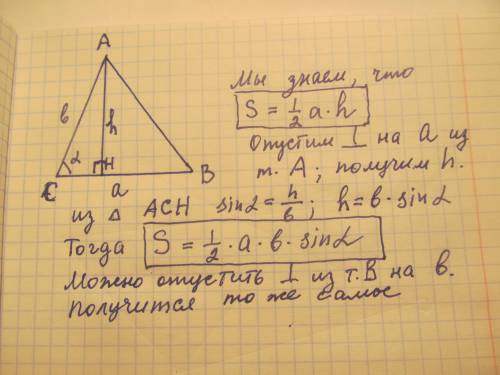 A
Мы знаем, что
в h
S = 1/2 a · h
Опустим ⊥ на a из
α H
C a B
т. A; получим h.
из Δ ACH sinα = h/в; h = в · sinα
Тогда S = 1/2 · a · в · sinα
Можно опустить ⊥ из т. В на в.
Получится то же самое